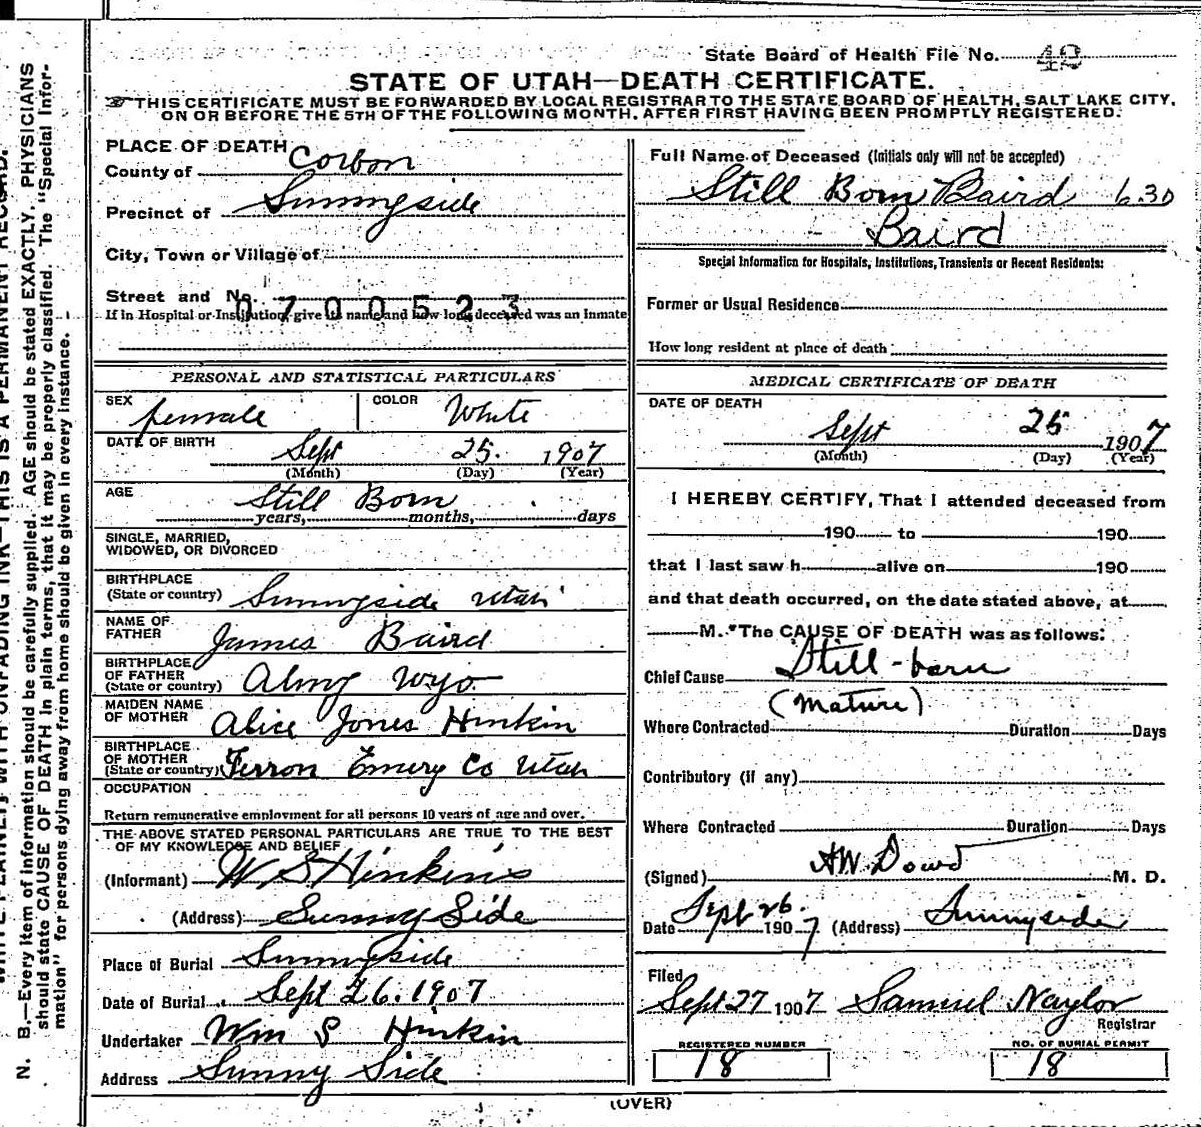 State Board of Health File No. 42
STATE OF UTAH—DEATH CERTIFICATE.
THIS CERTIFICATE MUST BE FORWARDED BY LOCAL REGISTRAR TO THE STATE BOARD OF HEALTH, SALT LAKE CITY,
ON OR BEFORE THE 5TH OF THE FOLLOWING MONTH, AFTER FIRST HAVING BEEN PROMPTLY REGISTERED.
PLACE OF DEATH
County of Corbon
Precinct of Sunnyside
City, Town or Village of
Street and No.
0700523
If in Hospital or Institution, give its name and how long deceased was an inmate
PERSONAL AND STATISTICAL PARTICULARS
SEX female COLOR White
DATE OF BIRTH Sept 25. 1907
(Month) (Day) (Year)
AGE Still Born
years, months, days
SINGLE, MARRIED,
WIDOWED, OR DIVORCED
BIRTHPLACE
(State or country) Sunnyside Utah
NAME OF
FATHER James Baird
BIRTHPLACE
OF FATHER
(State or country) Almy Wyo
MAIDEN NAME
OF MOTHER Alice Jones Hinkin
BIRTHPLACE
OF MOTHER
(State or country) Ferron Emery Co Utah
OCCUPATION
Return remunerative employment for all persons 10 years of age and over.
THE ABOVE STATED PERSONAL PARTICULARS ARE TRUE TO THE BEST
OF MY KNOWLEDGE AND BELIEF
(Informant) W S Hinkins
(Address) Sunny Side
Place of Burial Sunnyside
Date of Burial Sept 26. 1907
Undertaker Wm S Hinkin
Address Sunny Side
Full Name of Deceased (Initials only will not be accepted)
Still Born Baird 630
Baird
Special Information for Hospitals, Institutions, Transients or Recent Residents:
Former or Usual Residence
How long resident at place of death
MEDICAL CERTIFICATE OF DEATH
DATE OF DEATH
Sept 25 1907
(Month) (Day) (Year)
I HEREBY CERTIFY, That I attended deceased from
190 to 190
that I last saw h alive on 190
and that death occurred, on the date stated above, at
M. The CAUSE OF DEATH was as follows:
Chief Cause Still-born
(Mature)
Where Contracted Duration Days
Contributory (if any)
Where Contracted Duration Days
(Signed) A.W. Dowd M. D.
Date Sept 26. 1907 (Address) Sunnyside
Filed
Sept 27 1907 Samuel Naylor
Registrar
REGISTERED NUMBER NO. OF BURIAL PERMIT
18 18
(OVER)
N. B.—Every item of information should be carefully supplied. AGE should be stated EXACTLY. PHYSICIANS
should state CAUSE OF DEATH in plain terms, that it may be properly classified. The "Special Infor-
mation" for persons dying away from home should be given in every instance.